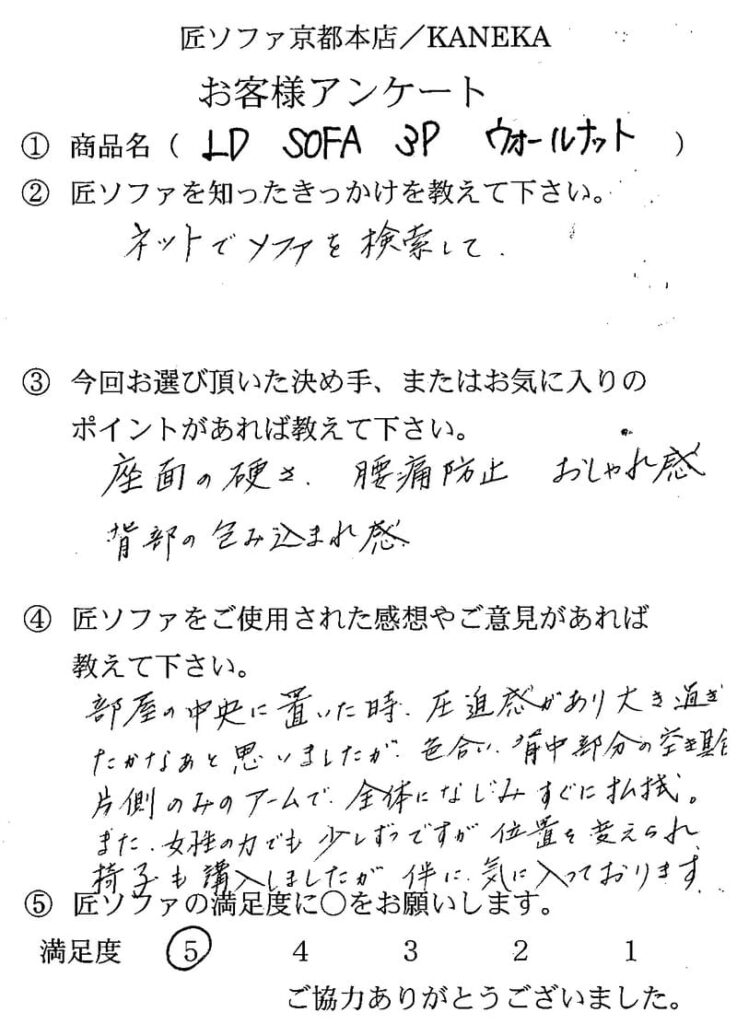 匠ソファ京都本店／KANEKA
お客様アンケート
① 商品名（ LD SOFA 3P ウォールナット ）
② 匠ソファを知ったきっかけを教えて下さい。
ネットでソファを検索して.
③ 今回お選び頂いた決め手、またはお気に入りの
ポイントがあれば教えて下さい。
座面の硬さ、腰痛防止 おしゃれ感
背部の包み込まれ感
④ 匠ソファをご使用された感想やご意見があれば
教えて下さい。
部屋の中央に置いた時、圧迫感があり大き過ぎ
たかなあと思いましたが、色合い、背中部分の空き具合
片側のみのアームで、全体になじみすぐに払拭。
また、女性の力でも少しずつですが位置を変えられ、
椅子も購入しましたが伴に気に入っております
⑤ 匠ソファの満足度に○をお願いします。
満足度 5 4 3 2 1
ご協力ありがとうございました。